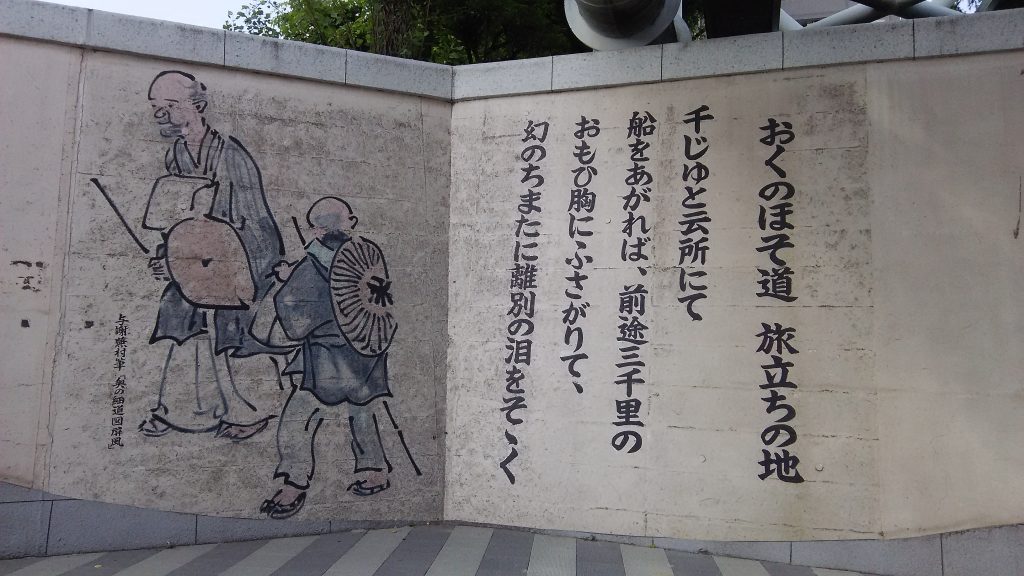 おくのほそ道 旅立ちの地
千じゆと云所にて
船をあがれば、前途三千里の
おもひ胸にふさがりて、
幻のちまたに離別の泪をそゝく
与謝蕪村筆 奥の細道図屏風」